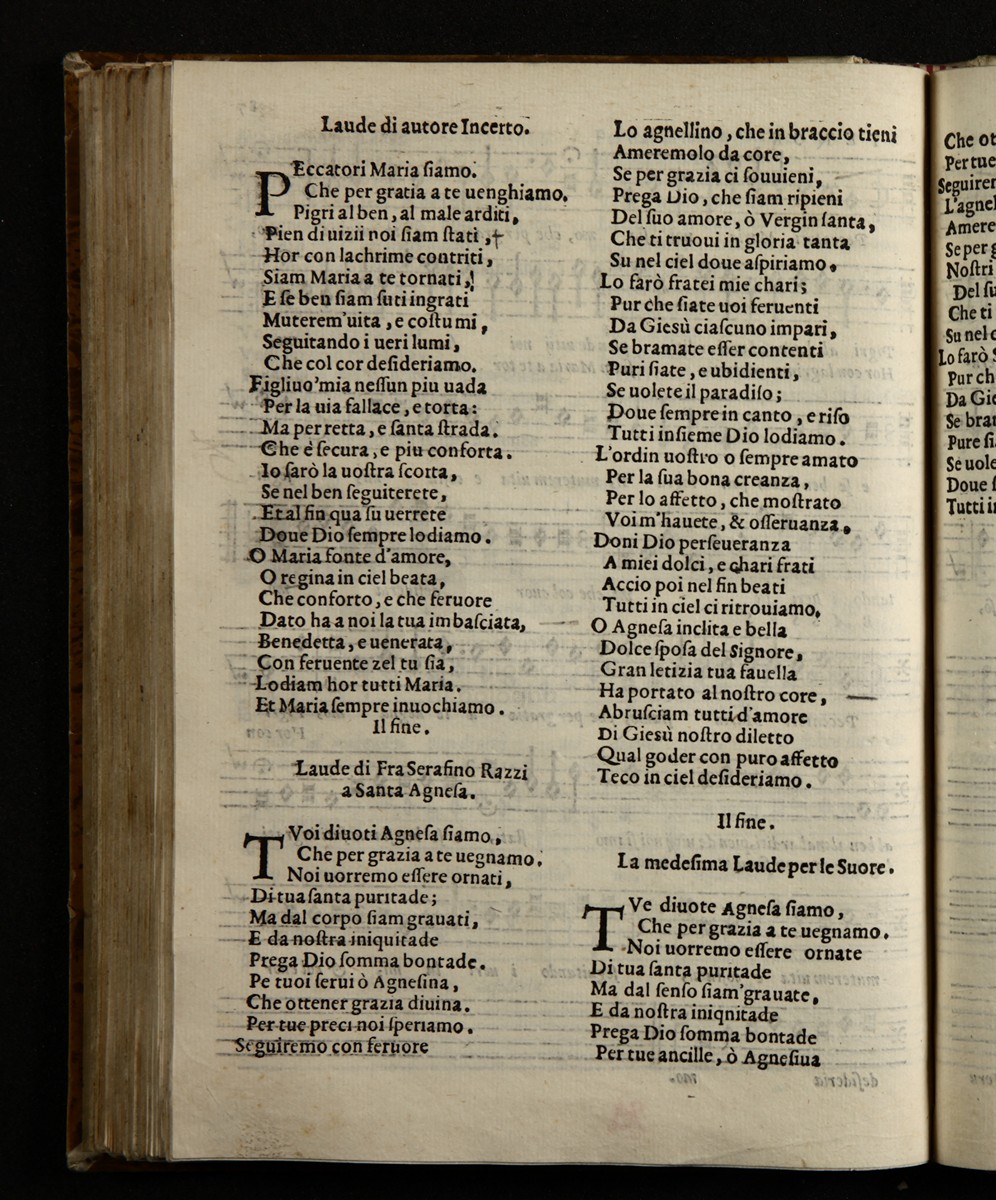 Laude di autore Incerto.
PEccatori Maria ſiamo.
Che per gratia a te uenghiamo.
Pigri al ben, al male arditi,
Pien di uizii noi ſiam ſtati,
Hor con lachrime contriti,
Siam Maria a te tornati,
E ſe ben ſiam ſuti ingrati
Muterem'uita, e coſtumi,
Seguitando i ueri lumi,
Che col cor deſideriamo.
Figliuo'mia neſſun piu uada
Per la uia fallace, e torta:
Ma per retta, e ſanta ſtrada.
Che è ſecura, e piu conforta.
Io ſarò la uoſtra ſcorta,
Se nel ben ſeguiterete,
Et al fin qua ſu uerrete
Doue Dio ſempre lodiamo.
O Maria fonte d'amore,
O regina in ciel beata,
Che conforto, e che feruore
Dato ha a noi la tua imbaſciata,
Benedetta, e uenerata,
Con feruente zel tu ſia,
Lodiam hor tutti Maria.
Et Maria ſempre inuochiamo.
Il fine.
Laude di Fra Serafino Razzi
a Santa Agneſa.
TVoi diuoti Agneſa ſiamo,
Che per grazia a te uegnamo.
Noi uorremo eſſere ornati,
Di tua ſanta puritade;
Ma dal corpo ſiam grauati,
E da noſtra iniquitade
Prega Dio ſomma bontade.
Pe tuoi ſerui ò Agneſina,
Che ottener grazia diuina.
Per tue preci noi ſperiamo.
Seguiremo con feruore
Lo agnellino, che in braccio tieni
Ameremolo da core,
Se per grazia ci ſouuieni,
Prega Dio, che ſiam ripieni
Del ſuo amore, ò Vergin ſanta,
Che ti truoui in gloria tanta
Su nel ciel doue aſpiriamo.
Lo farò fratei mie chari;
Pur che ſiate uoi feruenti
Da Gieſù ciaſcuno impari,
Se bramate eſſer contenti
Puri ſiate, e ubidienti,
Se uolete il paradiſo;
Doue ſempre in canto, e riſo
Tutti inſieme Dio lodiamo.
L'ordin uoſtro o ſempre amato
Per la ſua bona creanza,
Per lo affetto, che moſtrato
Voi m'hauete, & oſſeruanza.
Doni Dio perſeueranza
A miei dolci, e chari frati
Accio poi nel fin beati
Tutti in ciel ci ritrouiamo.
O Agneſa inclita e bella
Dolce ſpoſa del Signore,
Gran letizia tua fauella
Ha portato al noſtro core,
Abruſciam tutti d'amore
Di Gieſù noſtro diletto
Qual goder con puro affetto
Teco in ciel deſideriamo.
Il fine.
La medeſima Laude per le Suore.
TVe diuote Agneſa ſiamo,
Che per grazia a te uegnamo.
Noi uorremo eſſere ornate
Di tua ſanta puritade
Ma dal ſenſo ſiam'grauate,
E da noſtra iniqnitade
Prega Dio ſomma bontade
Per tue ancille, ò Agneſiua
Che ot
Per tue
Seguirer
L'agnel
Amere
Se per g
Noſtri
Del ſu
Che ti
Su nel c
Lo farò
Pur ch
Da Gie
Se bra
Pure ſi
Se uole
Doue ſ
Tutti i